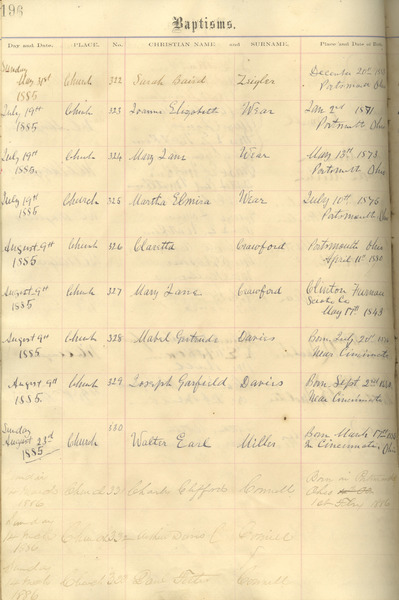 196
Baptisms.
Day and Date. PLACE. No. CHRISTIAN NAME. and SURNAME. Place and Date of
Sunday
May 31st
1885 Church 322 Sarah Baird Zeigler December 21st
Portsmouth Ohio
July 19th
1885 Church 323 Joanna Elizabeth Wear Jan 2nd 1871
Portsmouth Ohio
July 19th
1885 Church 324 Mary Jane Wear May 13th 1873
Portsmouth Ohio
July 19th
1885 Church 325 Martha Elmira Wear July 10th 1876
Portsmouth Ohio
August 9th
1885 Church 326 Claretta Crawford Portsmouth Ohio
April 11th
August 9th
1885 Church 327 Mary Jane Crawford Clinton Furnace
Scioto Co
May 17th 1843
August 9th
1885 Church 328 Mabel Gertrude Davies Born July 20th
Near Cincinnati
August 9th
1885 Church 329 Joseph Garfield Davies Born Sept 2nd
Near Cincinnati
Sunday
August 23rd
1885 Church 330 Walter Earl Miller Born March 17th
in Cincinnati, Ohio
1886 Church 331 Charles Clifford Connell Born in
Ohio
1st
Sunday
1886 Church 332 Connell
Sunday
1886 Church 333 Connell